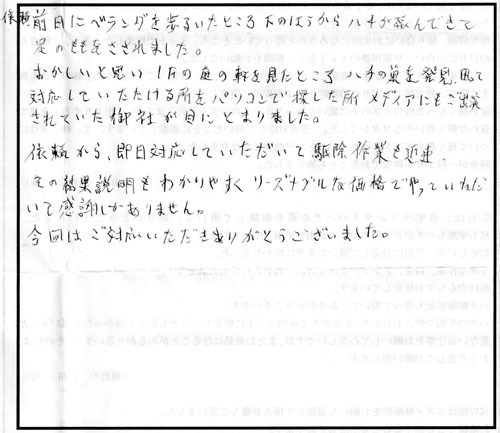 依頼前日にベランダを歩るいたところ下のほうからハチが飛んできて
足のももをさされました。
おかしいと思い1Fの庭の軒を見たところハチの巣を発見、即
対応していただける所をパソコンで探した所メディアにもご出演
されていた御社が目にとまりました。
依頼から、即日対応していただいて駆除作業も迅速、
その結果説明もわかりやすくリーズナブルな価格でやっていただ
いて感謝しかありません。
今回はご対応いただきありがとうございました。